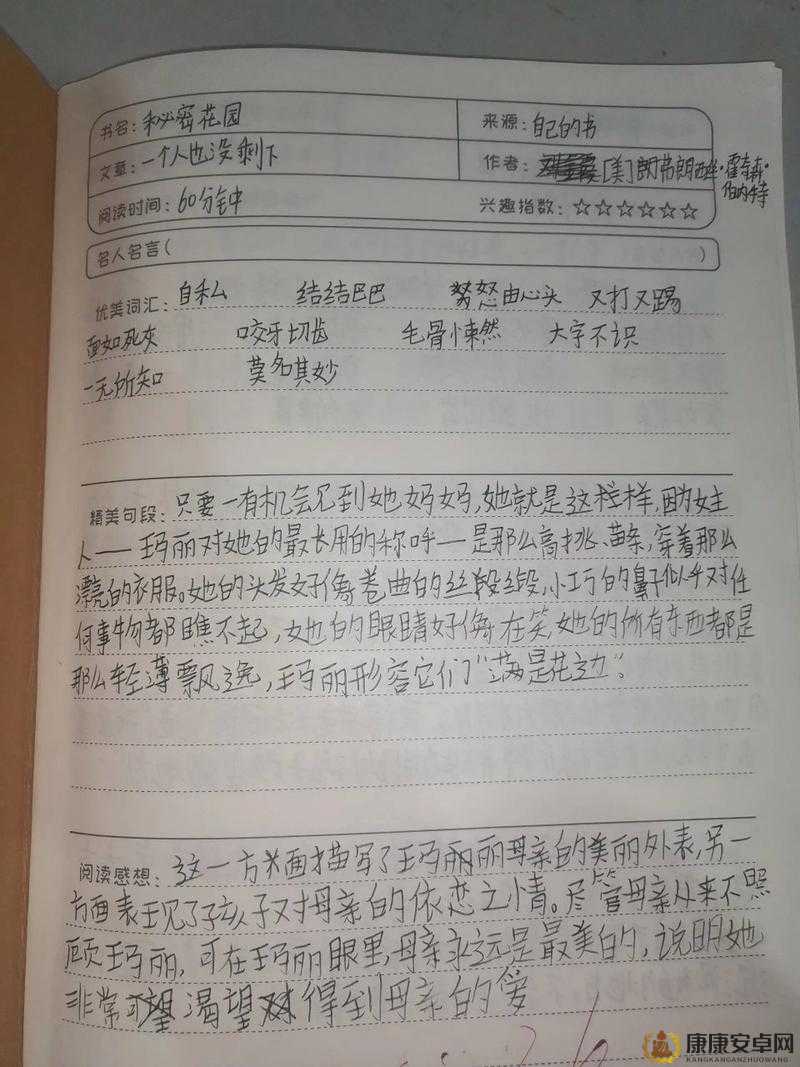 书名：秘密花园 来源：自己的书
文章：一个人也没剩下 作者：[美]朗弗朗西丝·霍奇森·
伯内特
阅读时间：60分钟 兴趣指数：☆☆☆☆☆☆
名人名言( )
优美词汇：自私 结结巴巴 努怒由心头 又打又踢
面如死灰 咬牙切齿 毛骨悚然 大字不识
一无所知 莫名其妙
精美句段：只要一有机会见到她妈妈，她就是这样，因为女主
人——玛丽对她的最长用的称呼——是那么高挑、苗条，穿着那么
漂亮的衣服。她的头发好像卷曲的丝缎，小巧的鼻子似乎对任
何事物都瞧不起，她的眼睛好像在笑，她的所有东西都是
那么轻薄飘逸，玛丽形容它们"满是花边"。
阅读感想：这一方面描写了玛丽丽母亲的美丽外表，另一
方面表现了孩子对母亲的依恋之情。尽管母亲从来不照
顾玛丽，可在玛丽眼里，母亲永远是最美的，说明她
非常渴望得到母亲的爱
康康安卓网
KANGKANGANZHUOWANG